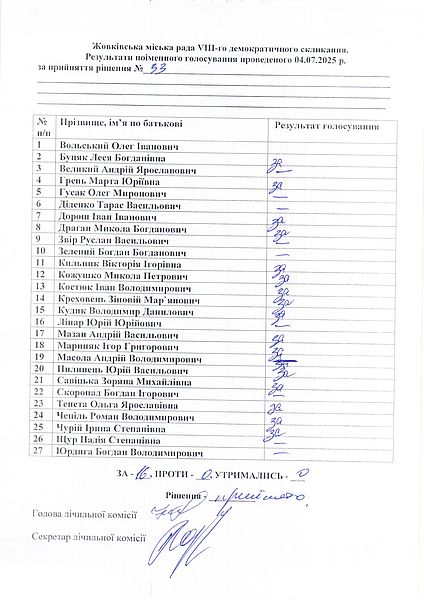 Жовківська міська рада VIII-го демократичного скликання.
Результати поіменного голосування проведеного 04.07.2025 р.
за прийняття рішення № 53
№ п/п Прізвище, ім’я по батькові Результат голосування
1 Вольський Олег Іванович
2 Буняк Леся Богданівна за
3 Великий Андрій Ярославович —
4 Грень Марта Юріївна за
5 Гусак Олег Миронович —
6 Діденко Тарас Васильович —
7 Дорош Іван Іванович за
8 Драган Микола Богданович за
9 Звір Руслан Васильович —
10 Зелений Богдан Богданович —
11 Кильник Вікторія Ігорівна за
12 Кожушко Микола Петрович за
13 Костюк Іван Володимирович за
14 Креховець Зіновій Мар`янович за
15 Кудик Володимир Данилович за
16 Лінар Юрій Юрійович —
17 Мазан Андрій Васильович за
18 Мариняк Ігор Григорович за
19 Масола Андрій Володимирович —
20 Пилипець Юрій Васильович за
21 Савіцька Зоряна Михайлівна за
22 Скоропад Богдан Ігорович —
23 Тенета Ольга Ярославівна за
24 Чепіль Роман Володимирович за
25 Чурій Ірина Степанівна за
26 Щур Надія Степанівна —
27 Юрдига Богдан Володимирович —
ЗА - 16, ПРОТИ - 0, УТРИМАЛИСЬ - 0
Рішення прийнято
Голова лічильної комісії
Секретар лічильної комісії